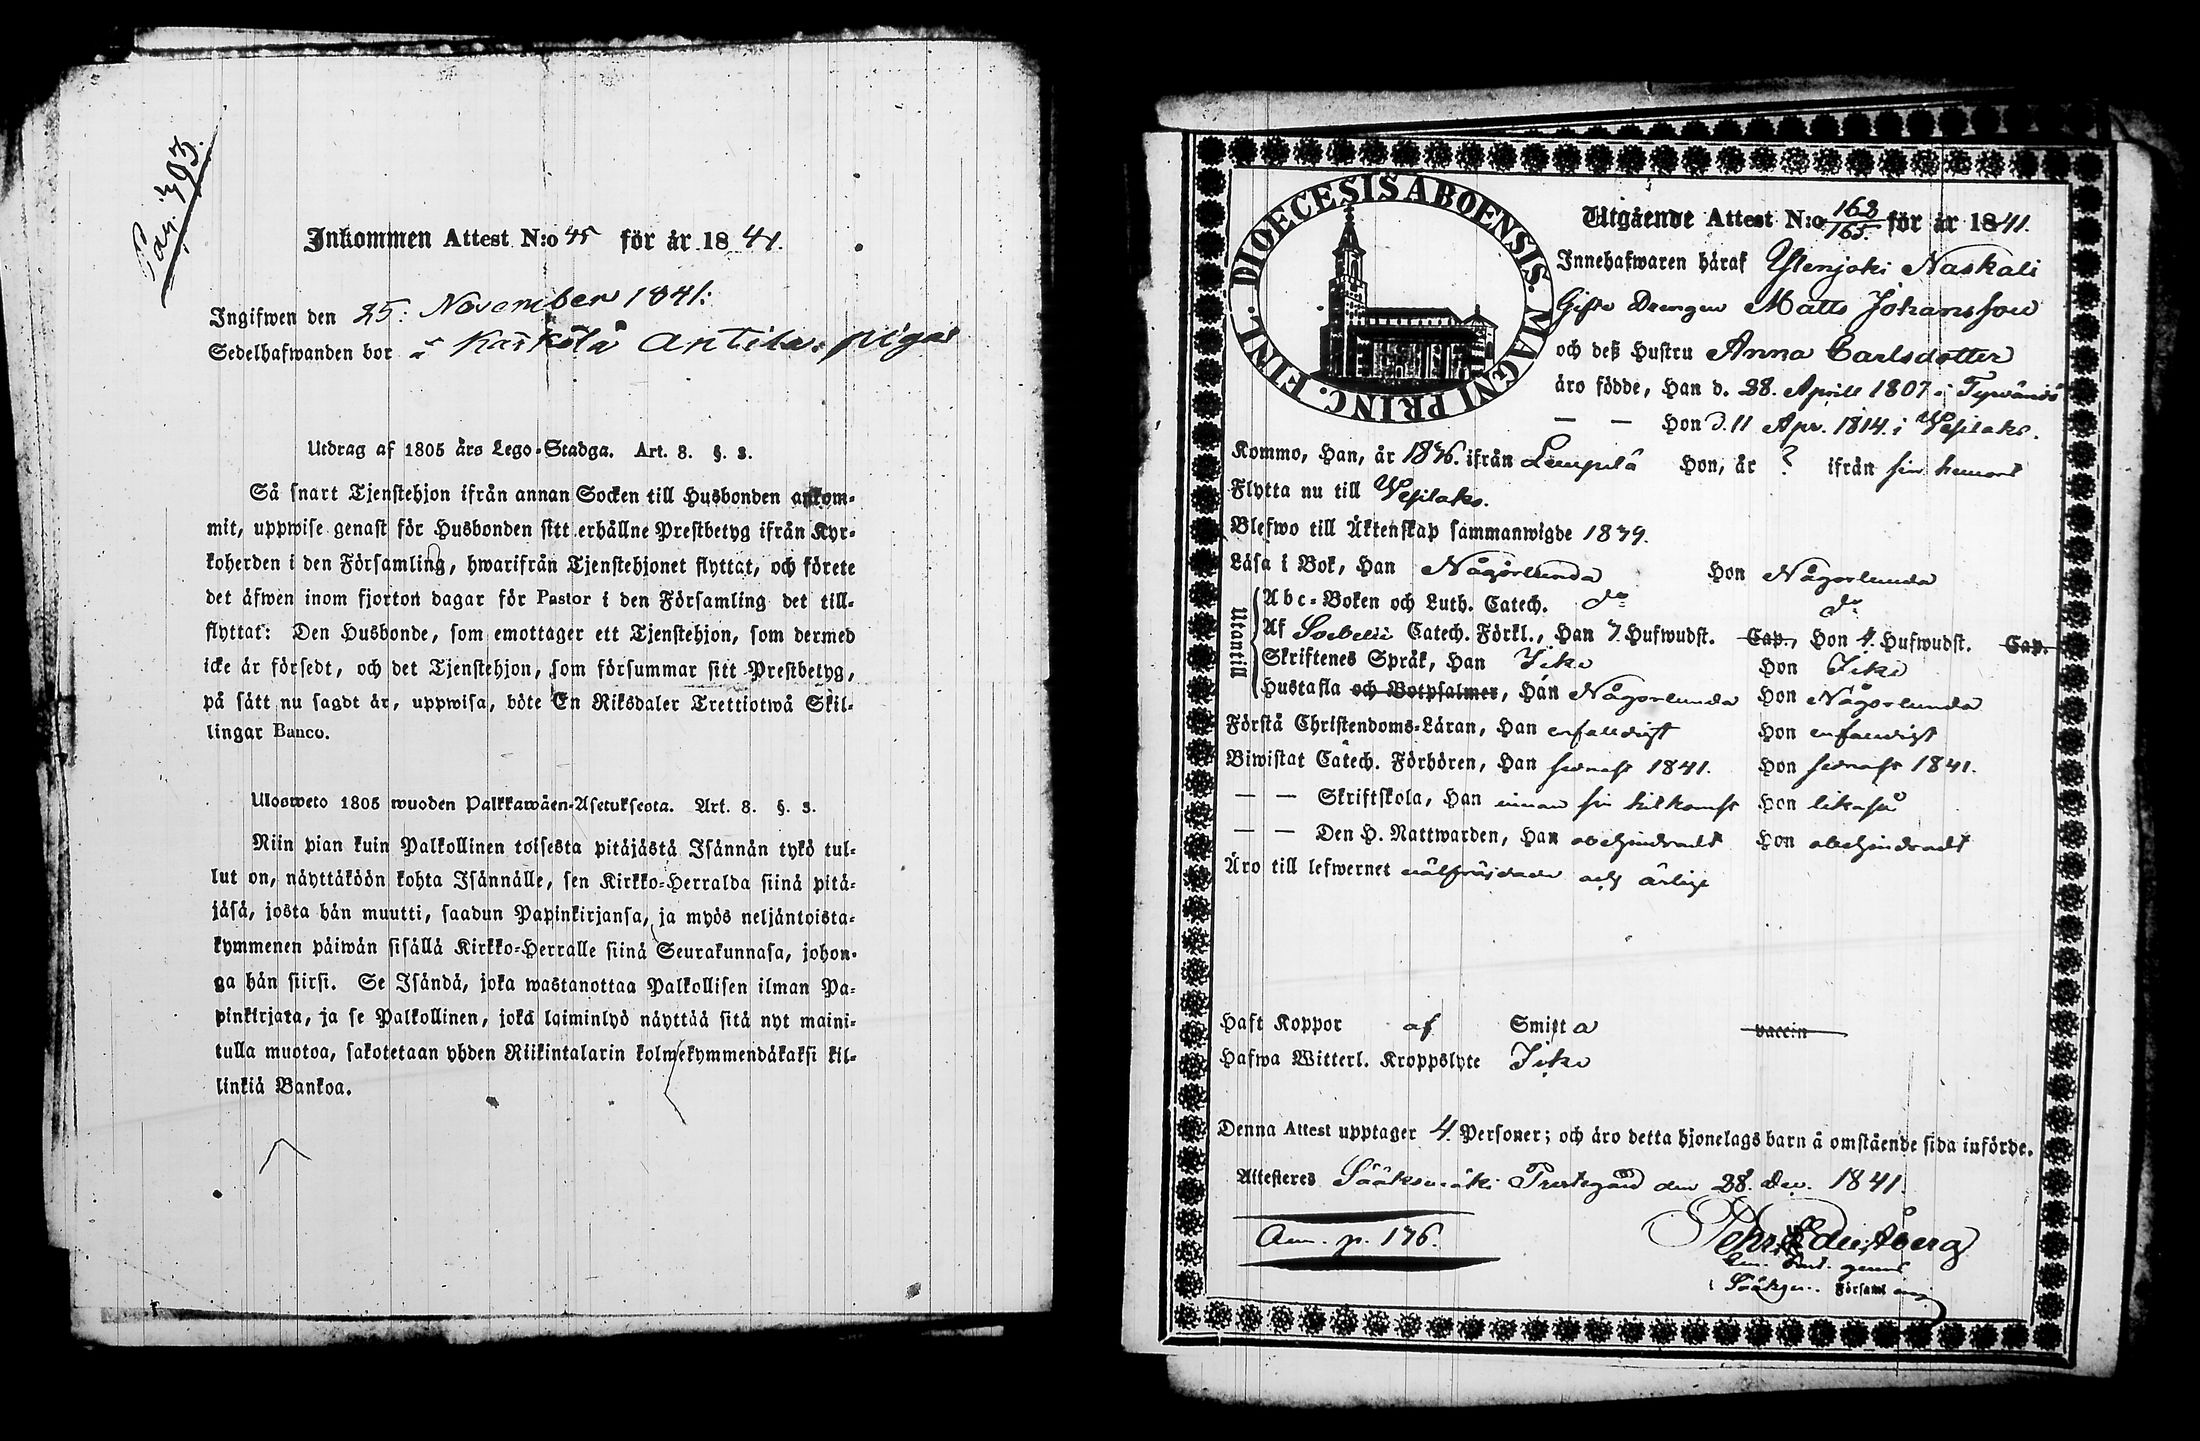 Pag. 393.
Inkommen Attest N:o 45 för år 1841.
Ingifwen den 25. November 1841.
Sedelhafwanden bor å Kärkölä Antila. pigas
Utdrag af 1805 års Lego-Stadga. Art. 8. §. 3.
Så snart Tjenstehjon ifrån annan Socken till Husbonden ankom-
mit, uppwise genast för Husbonden sitt erhållne Prestbetyg ifrån Kyr-
koherden i den Församling, hwarifrån Tjenstehjonet flyttat, och förete
det äfwen inom fjorton dagar för Pastor i den Församling det till-
flyttat: Den Husbonde, som emottager ett Tjenstehjon, som dermed
icke är försedt, och det Tjenstehjon, som försummar sitt Prestbetyg,
på sätt nu sagdt är, uppwisa, böte En Riksdaler Trettiotwå Skil-
lingar Banco.
Uloosweto 1805 wuoden Palkkawäen-Asetuksesta. Art. 8. §. 3.
Niin pian kuin Palkollinen toisesta pitäjästä Isännän tykö tul-
lut on, näyttäköön kohta Isännälle, sen Kirkko-Herralda siinä pitä-
jäsä, josta hän muutti, saadun Papinkirjansa, ja myös neljäntoista-
kymmenen päiwän sisällä Kirkko-Herralle siinä Seurakunnasa, johon-
ga hän siirsi. Se Isändä, joka wastanottaa Palkollisen ilman Pa-
pinkirjata, ja se Palkollinen, joka laiminlyö näyttää sitä nyt maini-
tulla muotoa, sakotetaan yhden Riikintalarin kolmekymmendäkaksi kil-
linkiä Bankoa.
DIOECESIS ABOENSIS. MAGNI PRINC. FINL.
Utgående Attest N:o 163/165. för år 1841.
Innehafwaren häraf Ylenjoki Naskali
Gifte Drengen Matts Johansson
och deß Hustru Anna Carlsdotter
äro födde, Han d. 28. Aprill 1807 i Tyrvändö
— — Hon d. 11 Apr. 1814. i Wesilaks.
Kommo, Han, år 1836. ifrån Lempälä Hon, år ? ifrån sin hemort
Flytta nu till Wesilaks.
Blefwo till Äktenskap sammanwigde 1839.
Läsa i Bok, Han Någorlunda Hon Någorlunda
Utantill
Abc-Boken och Luth. Catech. do do
Af Swebelii Catech. Förkl., Han 7. Hufwudst. Cap., Hon 4. Hufwudst. Cap.
Skriftenes Språk, Han Icke Hon Icke
Hustafla och Botpsalmer, Han Någorlunda Hon Någorlunda
Förstå Christendoms-Läran, Han enfaldigt Hon enfaldigt
Biwistat Catech. Förhören, Han sednast 1841. Hon sednast 1841.
— — Skriftskola, Han innan sin hitkomst Hon likaså
— — Den H. Nattwarden, Han obehindradt Hon obehindradt
Äro till lefwernet wälfräjdade och ärlige
Haft Koppor af Smitta vaccin
Hafwa Witterl. Kroppslyte Icke
Denna Attest upptager 4. Personer; och äro detta hjonelags barn å omstående sida införde.
Attesteres Sääksmäki Prestegård den 28. Dec. 1841.
Ann. p. 176.
i Sääksm. Församling